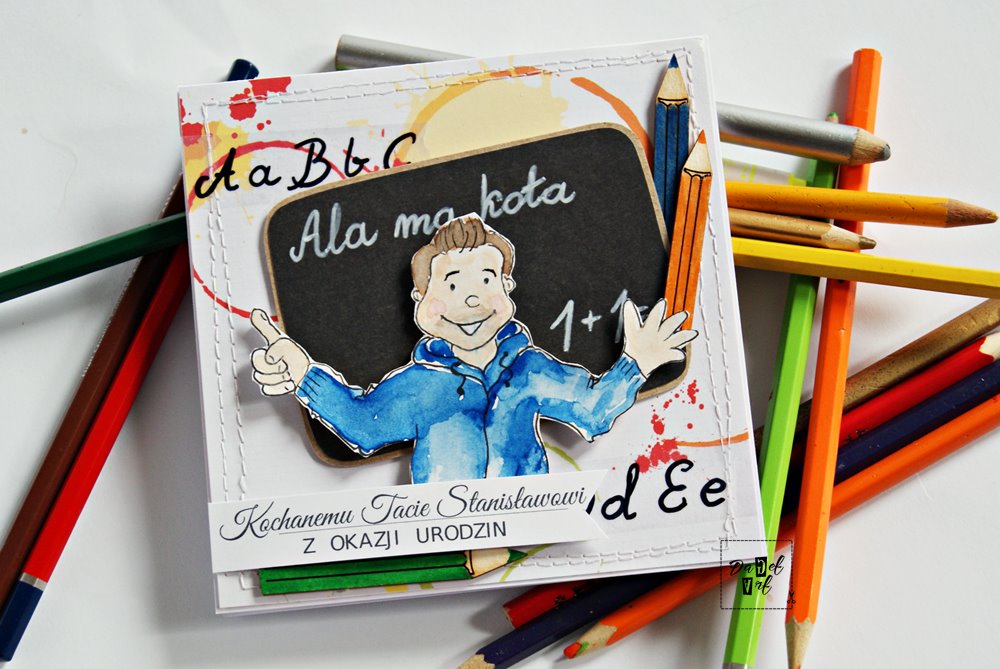 Aa B b C
Ala ma kota
1+1=
d Ee
Kochanemu Tacie Stanisławowi
Z OKAZJI URODZIN